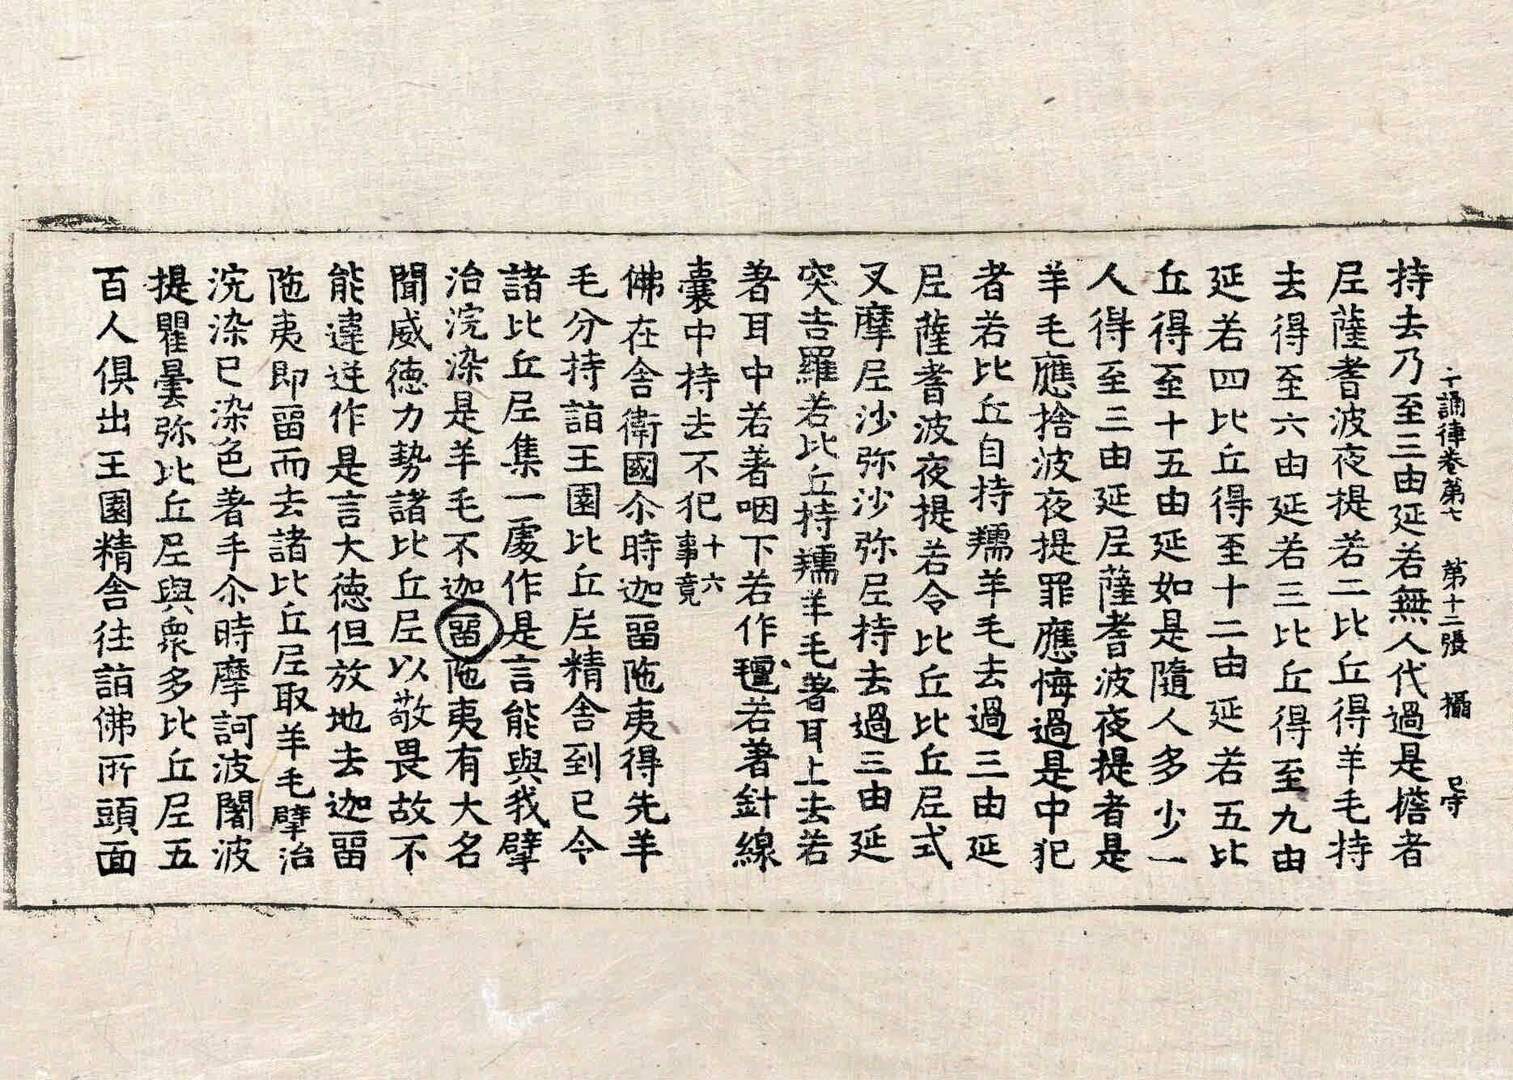 十誦律卷第七 第十二張 攝 㠯字
持去乃至三由延若無人代過是擔者
尼薩耆波夜提若二比丘得羊毛持
去得至六由延若三比丘得至九由
延若四比丘得至十二由延若五比
丘得至十五由延如是隨人多少一
人得至三由延尼薩耆波夜提者是
羊毛應捨波夜提罪應悔過是中犯
者若比丘自持羺羊毛去過三由延
尼薩耆波夜提若令比丘比丘尼式
叉摩尼沙弥沙弥尼持去過三由延
突吉羅若比丘持羺羊毛著耳上去若
著耳中若著咽下若作氊若著針線
囊中持去不犯十六事竟
佛在舍衛國尒時迦畱陁夷得先羊
毛分持詣王園比丘尼精舍到已令
諸比丘尼集一處作是言能與我擘
治浣染是羊毛不迦畱陁夷有大名
聞威德力勢諸比丘尼以敬畏故不
能違逆作是言大德但放地去迦畱
陁夷即畱而去諸比丘尼取羊毛擘治
浣染已染色著手尒時摩訶波闍波
提瞿曇弥比丘尼與衆多比丘尼五
百人俱出王園精舍往詣佛所頭面